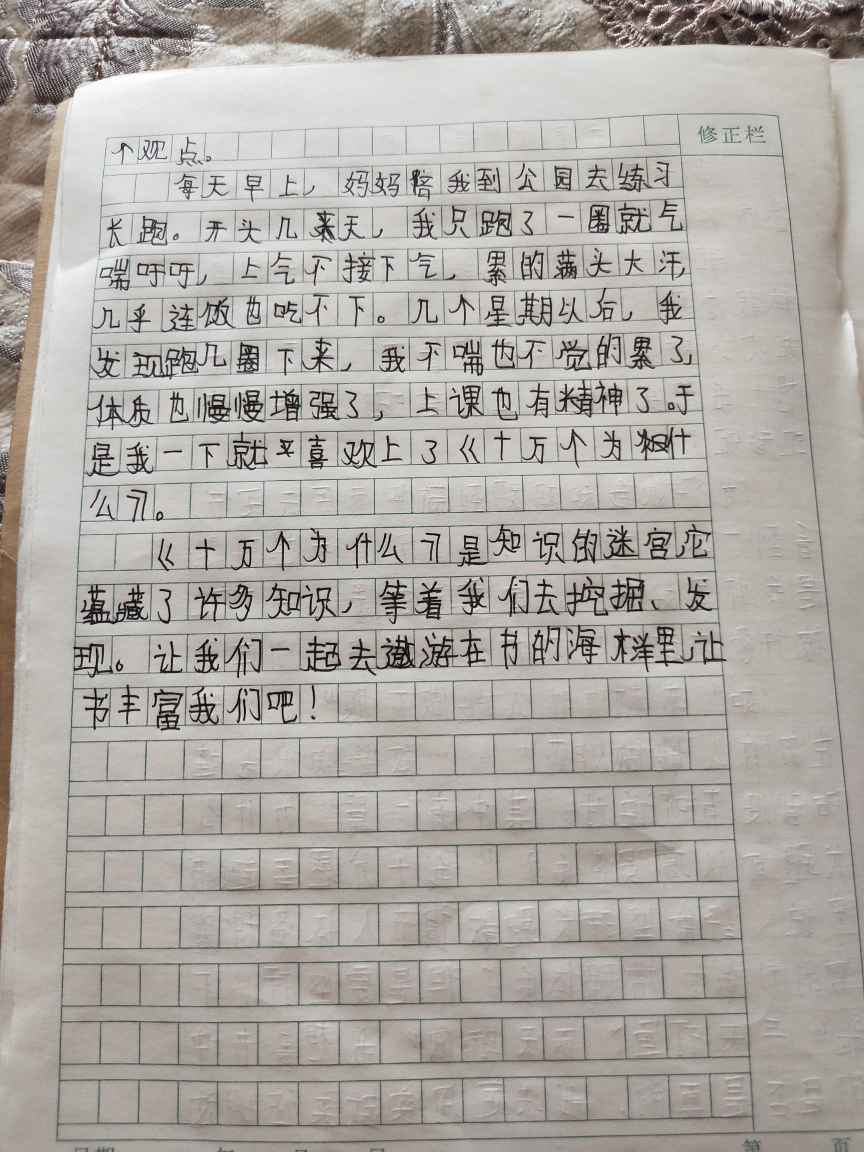 修正栏
个观点。
每天早上,妈妈陪我到公园去练习
长跑。开头几天,我只跑了一圈就气
喘吁吁,上气不接下气,累的满头大汗,
几乎连饭也吃不下。几个星期以后,我
发现跑几圈下来,我不喘也不觉的累了,
体质也慢慢增强了,上课也有精神了。于
是我一下就喜欢上了《十万个为什
么》。
《十万个为什么》是知识的迷宫,它
蕴藏了许多知识,等着我们去挖掘、发
现。让我们一起去遨游在书的海洋里,让
书丰富我们吧!
第 页